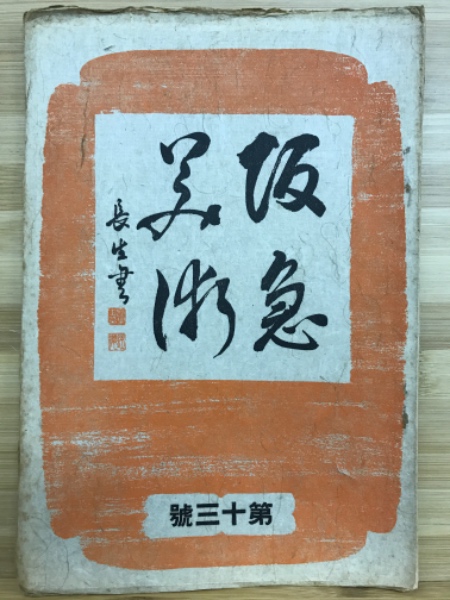 阪急
美術
長生書
第十三號